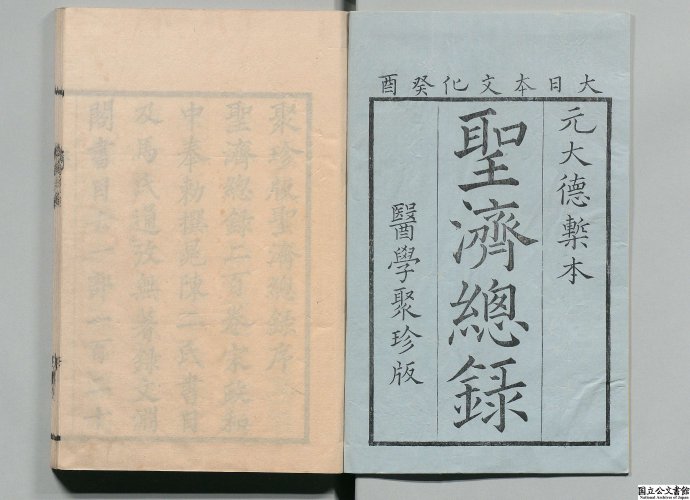 大日本文化癸酉
元大德槧本
聖濟總録
醫學聚珍版
聚珍版聖濟總録序
聖濟總録二百卷宋政和
中奉勅撰晁陳二氏書目
及馬氏通攷無著録文淵
閣書目云一部一百三十
国立公文書館
National Archives of Japan